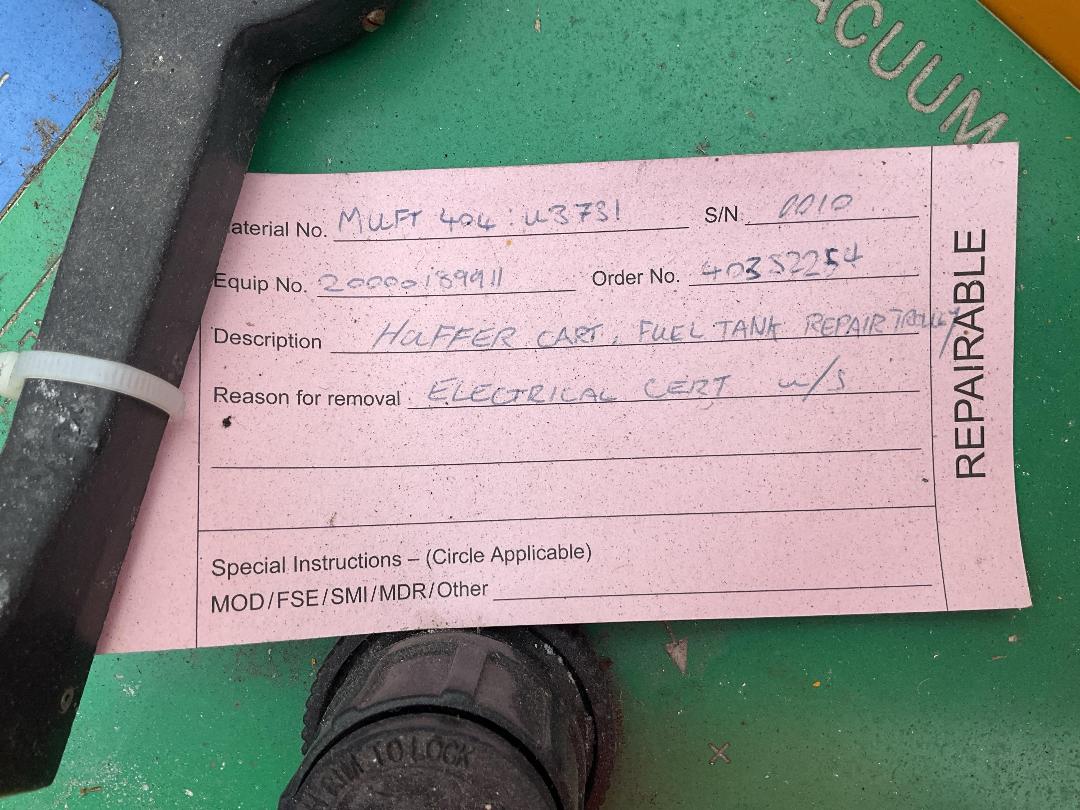 VACUUM
aterial No. MUFT 404:U3731 S/N 0010
Equip No. 20000189911 Order No. 40352254
Description HUFFER CART, FUEL TANK REPAIR TROLLY
Reason for removal ELECTRICAL CERT u/s
Special Instructions – (Circle Applicable)
MOD/FSE/SMI/MDR/Other
REPAIRABLE
TO LOCK